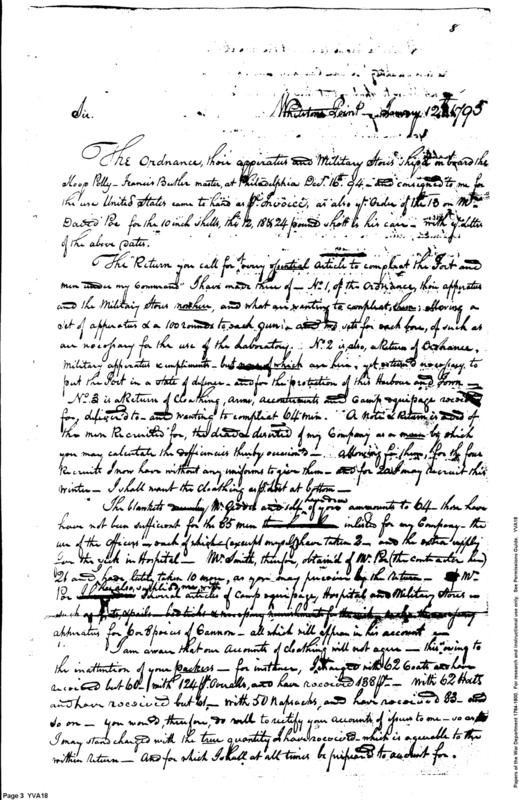 8
Sir. Whitstone Point January 12th 1795
The Ordnance, their apparatus and Military Stores shipt on board the
Sloop Polly - Francis Butler master, at Philadelphia Decr. 16th 94 - and consigned to me for
the use United States came to hand as pr. Invoice, as also yr. Order of the 13 on Mr.
David Poe for the 10 inch shells, the 12, 18 & 24 pound shott in his care - with yr. letter
of the above dates.
The "Return you call for "every essential Article to compleat the "Fort and
men under my Command" I have made three of - No. 1, of the Ordnance, their apparatus
and the Military Stores now here, and what are wanting to compleat them; allowing a
set of apparatus & a 100 rounds to each gun: and
are necessary for the use of the Laboratory. No. 2 is also, a Return of Ordnance,
Military apparatus & impliments - but none of which are here, yet necessary, to
put the Fort in a state of defence - and for the protection of this Harbour and Town -
- No. 3 is a Return of Cloathing, arms, accoutrements and Camp equipage received
for, delivered to - and wanting to compleat 64 men. A Note & Return is
the men Recruited for, the dead & deserted of my Company as a mean by which
you may calculate the defficiencies thereby occasioned - allowing for them, for the four
Recruits I now have without any uniforms to give them - and for I may recruit this
Winter - I shall want the cloathing at bottom -
The blankets Mr. and of yours ammounts to 64 - those have
have not been sufficient for the 65 men inlisted for my Company - the
use of the Officers - each of which (except myself) have taken 2 - and the extra supply
for the sick in Hospital - Mr. Smith, therefore, obtain'd of Mr. Poe (the contractor here)
21 and have lately taken 10 more, as you may perceive by the Return - Mr.
Poe has also supplied me with Several articles of Camp equipage, Hospital and Military Stores -
such as
apparatus for Six pieces of Cannon - all which will appear in his account
I am aware that our Accounts of cloathing will not agree - this owing to
the inattention of your packers - for instance, I charged with 62 Coats and have
received but 60 - with 124 pr. Overalls, and have received 188 pr. - With 62 Hatts
and have received but 61 - with 50 Napsacks, and have received 83 - and
so on - you wou'd, therefore, do well to rectify your accounts of issues to me - so as
I may stand charged with the true quantity I have received - which is agreeable to the
within Return - And for which I shall at all times be prepared to account for.
Page 3 YVA18
Papers of the War Department 1784-1800. For research and instructional use only. See Permissions Guide. YVA18